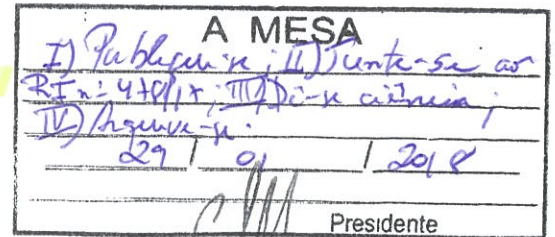 A MESA
I) Publique-se; II) Junte-se ao
RI nº 478/17; III) Dê-se ciência;
IV) Arquive-se.
29 / 01 / 2018
Presidente